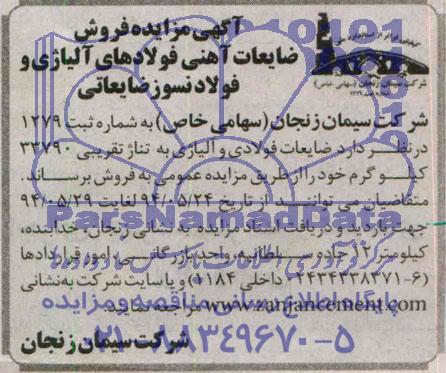 آگهی مزایده فروش
ضایعات آهنی فولادهای آلیاژی و
فولاد نسوز ضایعاتی
شرکت سیمان زنجان (سهامی خاص)
شرکت سیمان زنجان (سهامی خاص) به شماره ثبت ۱۲۷۹
درنظر دارد ضایعات فولادی و آلیاژی به تناژ تقریبی ۳۳۷۹۰
کیلو گرم خود را از طریق مزایده عمومی به فروش برساند.
متقاضیان می توانند از تاریخ ۹۴/۰۵/۲۴ لغایت ۹۴/۰۵/۲۹
جهت بازدید و دریافت اسناد مزایده به نشانی زنجان، خدابنده،
کیلومتر ۲ جاده سلطانیه، واحد بازرگانی، امور قراردادها
(۶-۰۲۴۳۴۲۳۸۴۷۱ داخلی ۱۱۸۴) و یا سایت شرکت به نشانی
www.zanjancement.com مراجعه نمایند.
شرکت سیمان زنجان
ParsNamadData
پایگاه اطلاع رسانی مناقصه و مزایده
۰۲۱-۸۸۳۴۹۶۷۰-۵